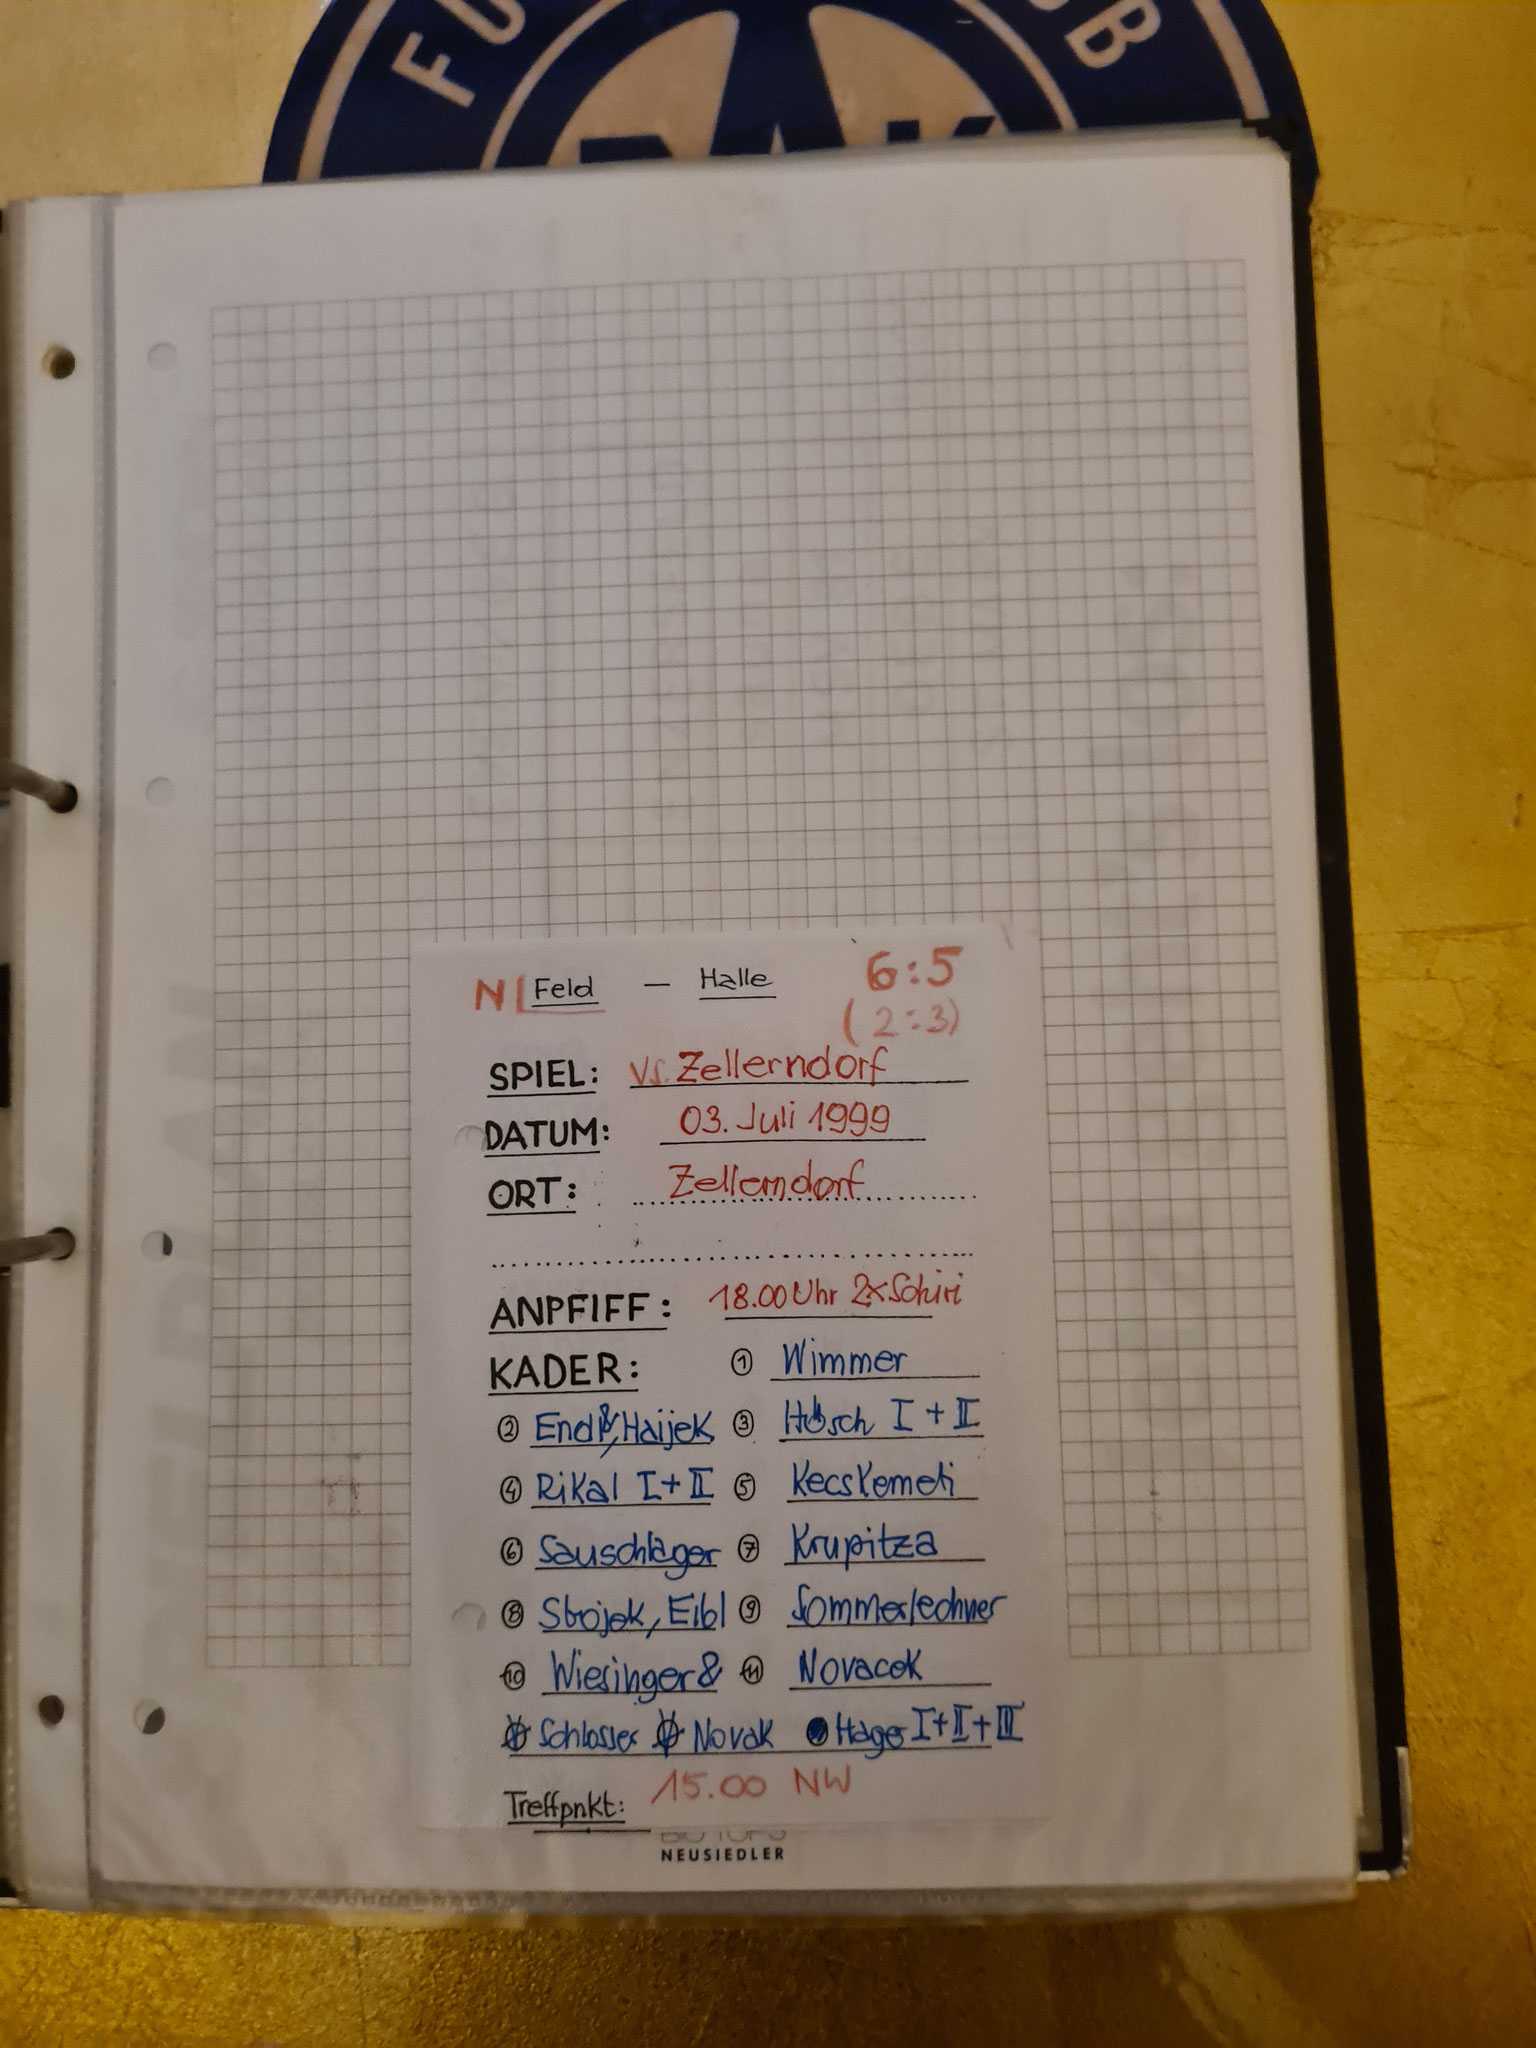 FU UB
N Feld - Halle 6:5
(2:3)
SPIEL: vs. Zellerndorf
DATUM: 03. Juli 1999
ORT: Zellerndorf
ANPFIFF: 18.00 Uhr 2xSchiri
KADER: ① Wimmer
② Endl, Haijek ③ Hösch I + II
④ Rikal I + II ⑤ Kecskemeti
⑥ Sauschläger ⑦ Krupitza
⑧ Stojek, Eibl ⑨ Sommerlechner
⑩ Wiesinger & ⑪ Novacek
Schlosser Novak Hager I+II+III
Treffpnkt: 15.00 NW
BIO TOP 3
NEUSIEDLER